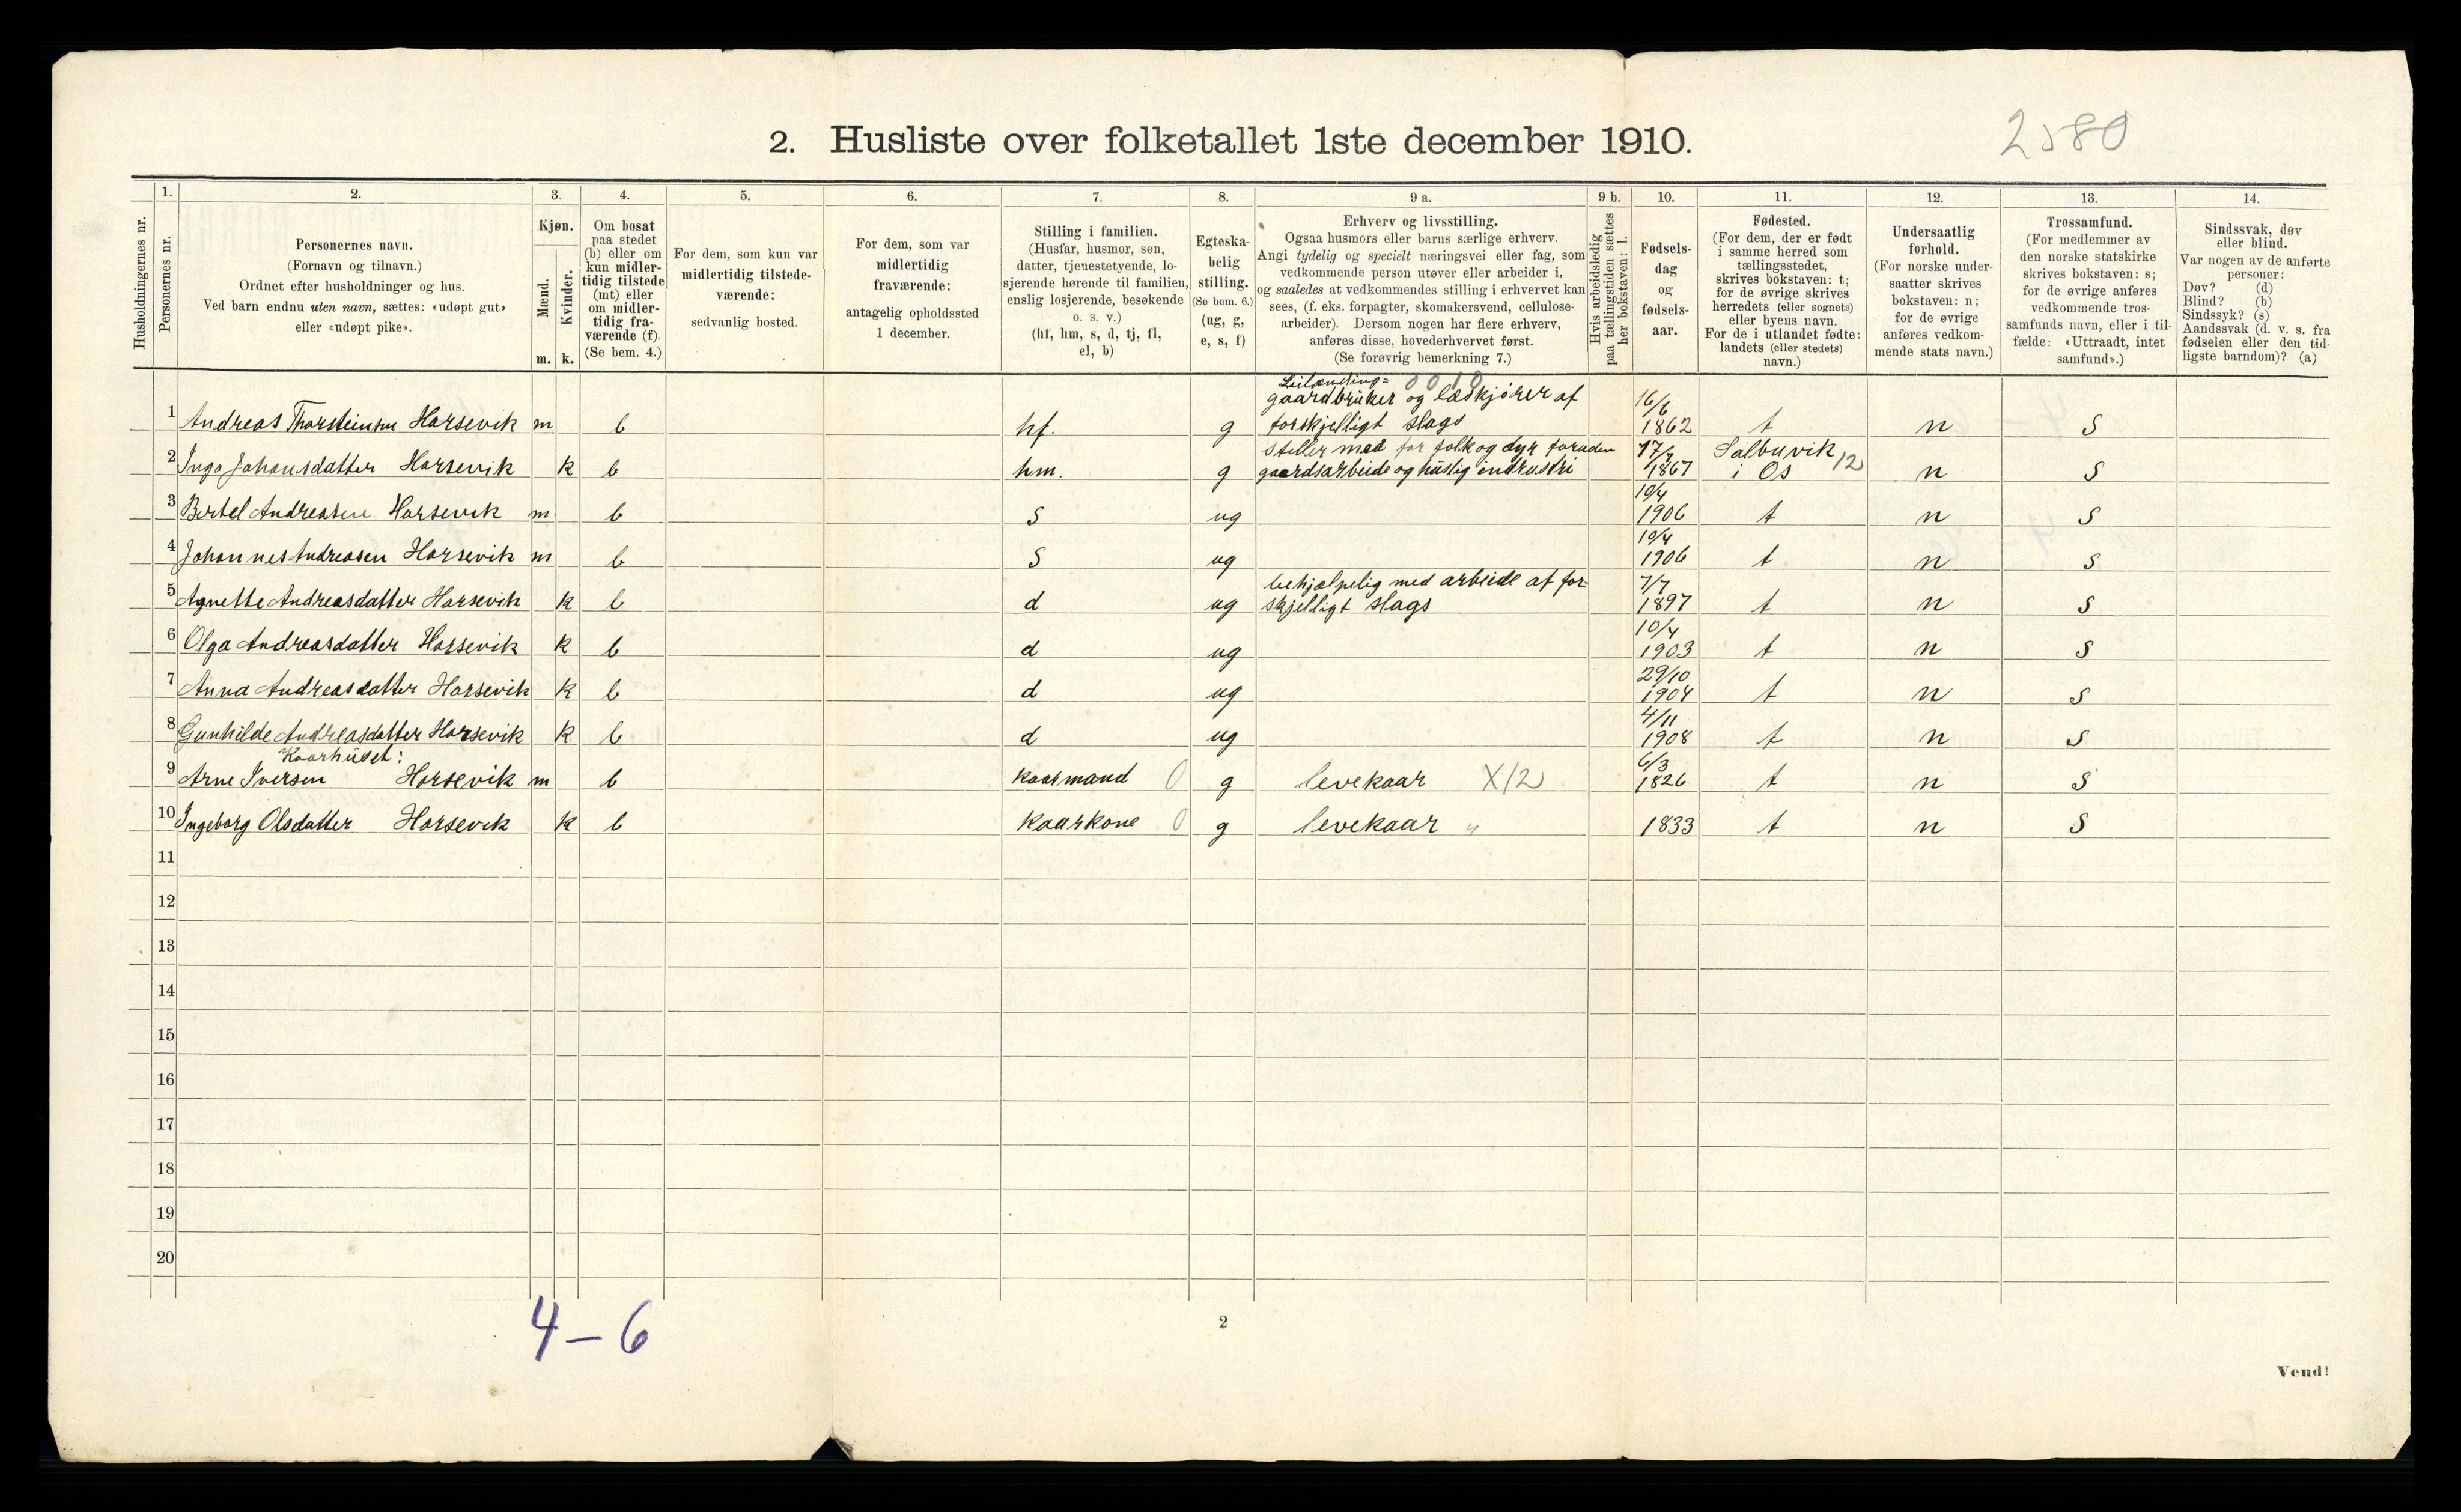 2580
2. Husliste over folketallet 1ste december 1910.
Husholdningernes nr.
1.
Personernes nr.
2.
Personernes navn.
(Fornavn og tilnavn.)
Ordnet efter husholdninger og hus.
Ved barn endnu uten navn, sættes: «udøpt gut»
eller «udøpt pike».
3.
Kjøn.
Mænd.
Kvinder.
m. k.
4.
Om bosat
paa stedet
(b) eller om
kun midler-
tidig tilstede
(mt) eller
om midler-
tidig fra-
værende (f).
(Se bem. 4.)
5.
For dem, som kun var
midlertidig tilstede-
værende:
sedvanlig bosted.
6.
For dem, som var
midlertidig
fraværende:
antagelig opholdssted
1 december.
7.
Stilling i familien.
(Husfar, husmor, søn,
datter, tjenestetyende, lo-
sjerende hørende til familien,
enslig losjerende, besøkende
o. s. v.)
(hf, hm, s, d, tj, fl,
el, b)
8.
Egteska-
belig
stilling.
(Se bem. 6.)
(ug, g,
e, s, f)
9 a.
Erhverv og livsstilling.
Ogsaa husmors eller barns særlige erhverv.
Angi tydelig og specielt næringsvei eller fag, som
vedkommende person utøver eller arbeider i,
og saaledes at vedkommendes stilling i erhvervet kan
sees, (f. eks. forpagter, skomakersvend, cellulose-
arbeider). Dersom nogen har flere erhverv,
anføres disse, hovederhvervet først.
(Se forøvrig bemerkning 7.)
9 b.
Hvis arbeidsledig
paa tællingstiden sættes
her bokstaven: l.
10.
Fødsels-
dag
og
fødsels-
aar.
11.
Fødested.
(For dem, der er født
i samme herred som
tællingsstedet,
skrives bokstaven: t;
for de øvrige skrives
herredets (eller sognets)
eller byens navn.
For de i utlandet fødte:
landets (eller stedets)
navn.)
12.
Undersaatlig
forhold.
(For norske under-
saatter skrives
bokstaven: n;
for de øvrige
anføres vedkom-
mende stats navn.)
13.
Trossamfund.
(For medlemmer av
den norske statskirke
skrives bokstaven: s;
for de øvrige anføres
vedkommende tros-
samfunds navn, eller i til-
fælde: «Uttraadt, intet
samfund».)
14.
Sindssvak, døv
eller blind.
Var nogen av de anførte
personer:
Døv? (d)
Blind? (b)
Sindssyk? (s)
Aandssvak (d. v. s. fra
fødselen eller den tid-
ligste barndom)? (a)
Leilænding= 0010
gaardbruker og læskjører af 16/6
1 Andreas Thorsteinsen Horsevik m b hf. g forskjelligt slags 1862 t n s
steller med for folk og dyr foruden 17/7 Salbuvik
2 Inga Johansdatter Horsevik k b hm. g gaardsarbeide og huslig indrustri 1867 i Os 12 n s
10/4
3 Bertel Andreasen Horsevik m b s ug 1906 t n s
10/4
4 Johannes Andreasen Horsevik m b s ug 1906 t n s
behjælpelig med arbeide af for- 7/7
5 Agnette Andreasdatter Horsevik k b d ug skjelligt slags 1897 t n s
10/4
6 Olga Andreasdatter Horsevik k b d ug 1903 t n s
29/10
7 Anna Andreasdatter Horsevik k b d ug 1904 t n s
4/11
8 Gunhilde Andreasdatter Horsevik k b d ug 1908 t n s
Kaarhuset: 6/3
9 Arne Iversen Horsevik m b kaarmand 0 g levekaar X12 1826 t n s
10 Ingeborg Olsdatter Horsevik k b kaarkone 0 g levekaar " 1833 t n s
11
12
13
14
15
16
17
18
19
20
4-6
2
Vend!